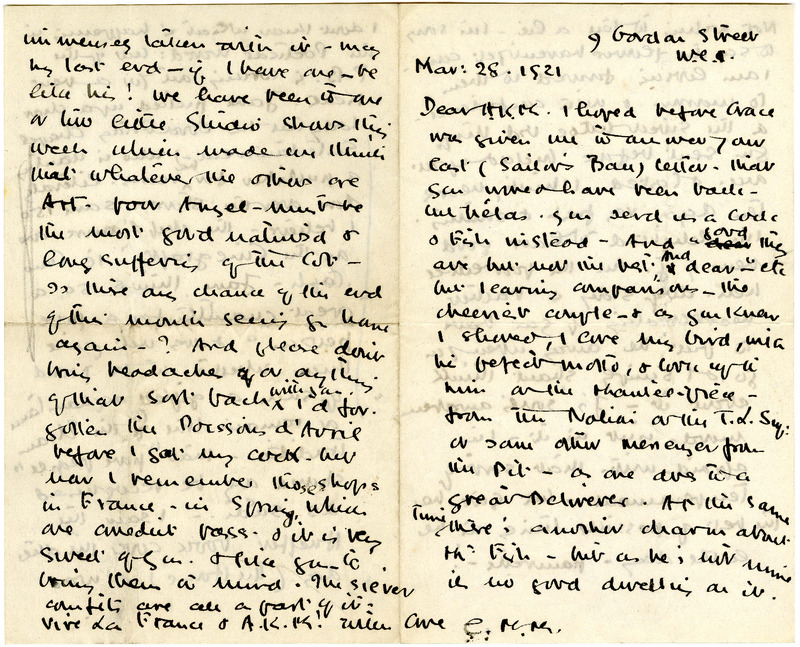 9 Gordon Street
W.C.1.
Mar: 28. 1921
Dear A.K.K. I hoped before Grace
was given me to answer your
last (Sailor's Ban) letter - that
you would have been back -
but hélas. you send us a Cock
& Fish instead - And good they
are but not the best, and dear - etc
but leaving comparisons - the
cheeriest couple - & as you knew
I should, I love my bird, with
his perfect motto, & look up to
him on the mantel-piece -
from the
or some other messenger from
the Pit - as one does to a
great Deliverer. At the same
time, there's another charm about
the Fish - but as he's not mine
it's no good dwelling on it.
immensely taken with it - may
my last end - if I have one - be
like his! We have been to one
or two little Studio shows this
week which made me think
that whatever the others are
Art - poor Angel - must be
the most good natured &
long suffering of the lot -
Is there any chance of the end
of this month seeing you home
again - ? And please don't
bring headaches or anything
of that sort back with you. I'd for-
gotten the Poissons d'Avril
before I got my cock but
now I remember those shops
in France - in Spring, which
are
sweet of you & like you to
bring them to mind. The silver
comfits are all a part of it -
vive La France & A.K.K! with love C.M.M.